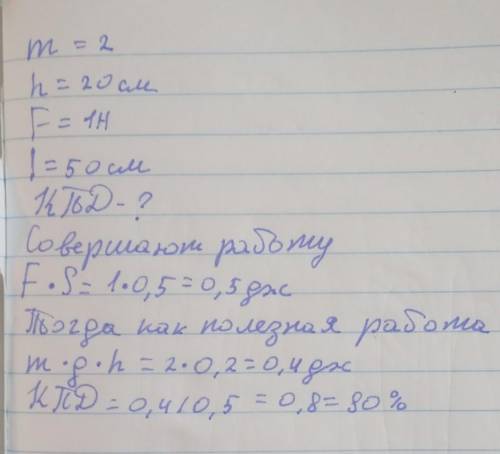 m = 2
h = 20 см
F = 1Н
l = 50 см
КПД - ?
Совершают работу
F • S = 1 • 0,5 = 0,5 дж
Тогда как полезная работа
m • g • h = 2 • 0,2 = 0,4 дж
КПД = 0,4 / 0,5 = 0,8 = 80%